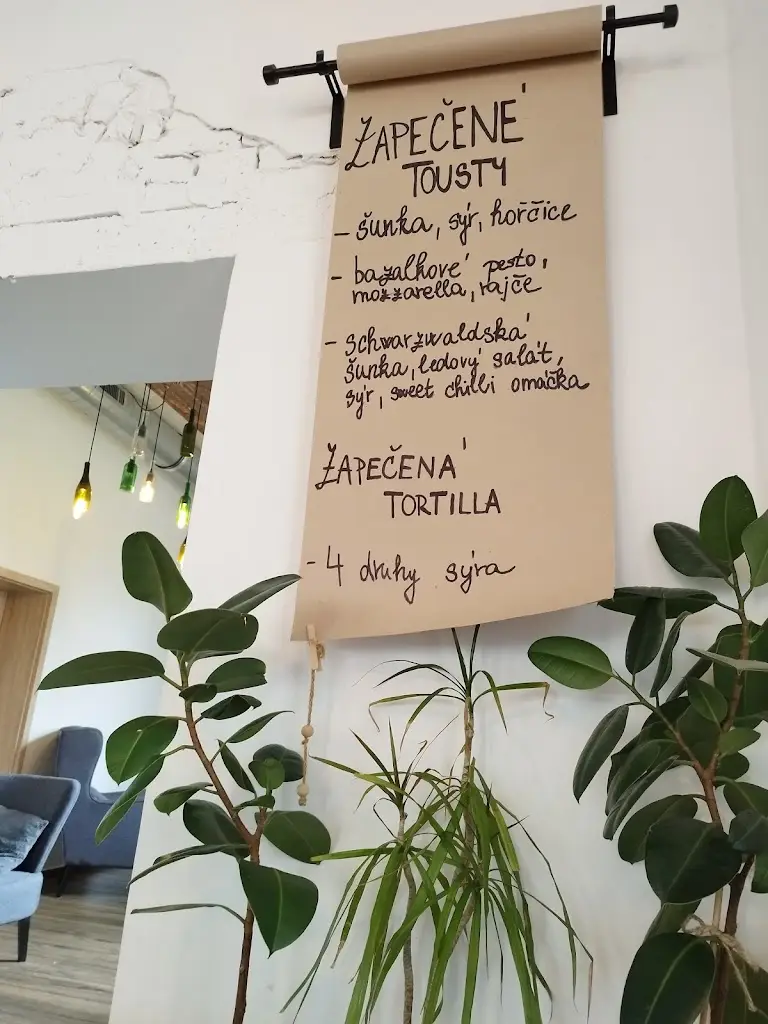 ZAPEČENÉ
TOUSTY
- šunka, sýr, hořčice
- bazalkové pesto,
mozzarella, rajče
- schwarzwaldská
šunka, ledový salát,
sýr, sweet chilli omáčka
ZAPEČENÁ
TORTILLA
- 4 druhy sýra